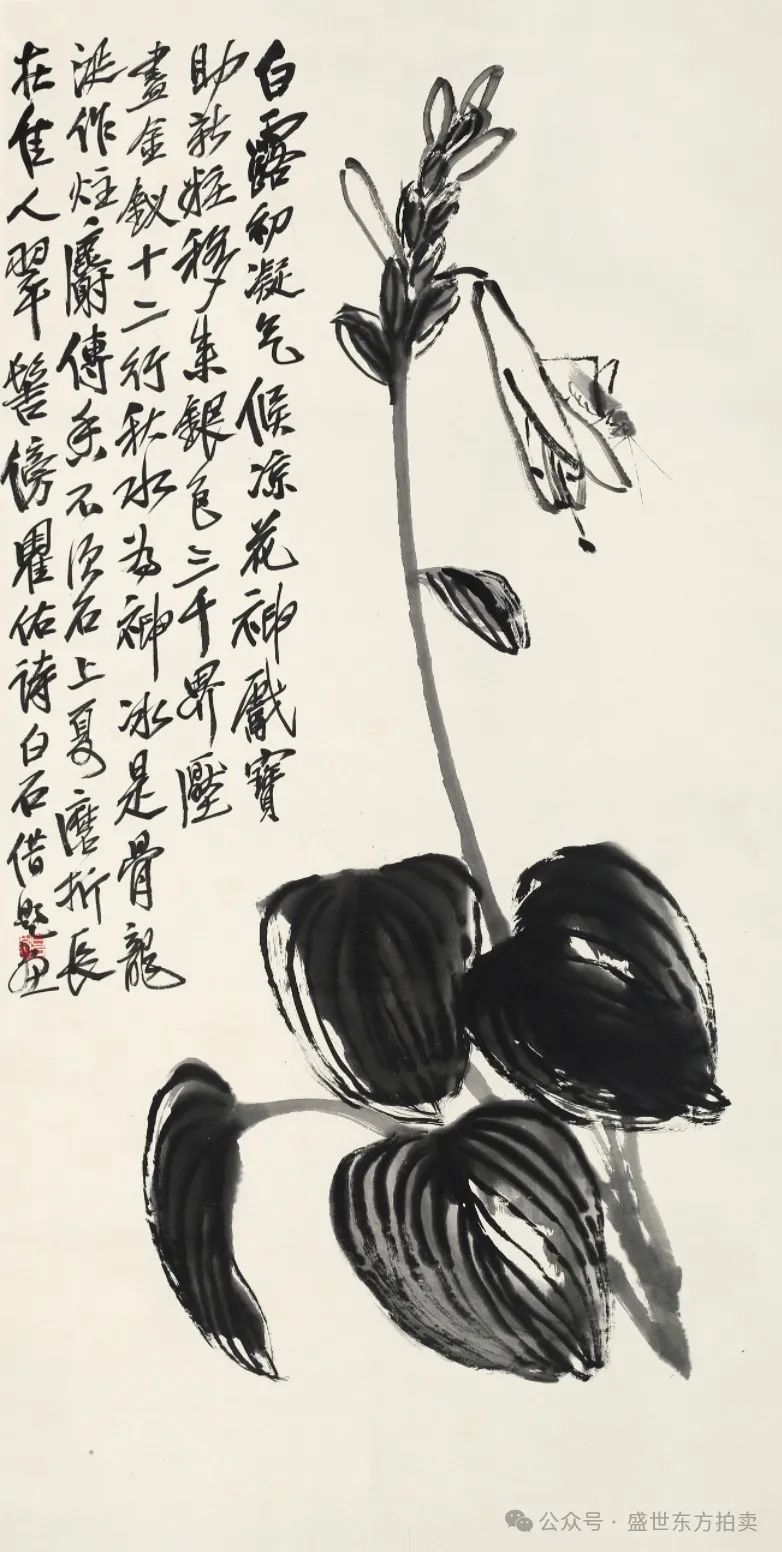 白露初凝气候凉花神獻寶
助新粧移來銀色三千界壓
盡金釵十二行秋水為神冰是骨龍
涎作炷麝傳香不須石上磨折長
在佳人翠髻傍瞿佑詩白石借題画
公众号 · 盛世东方拍卖